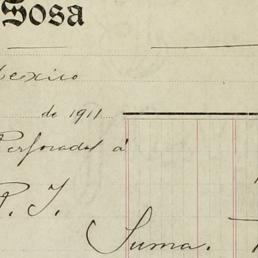 Sosa
Mexico
de 1911
Perforadas á
P. I.
Suma.